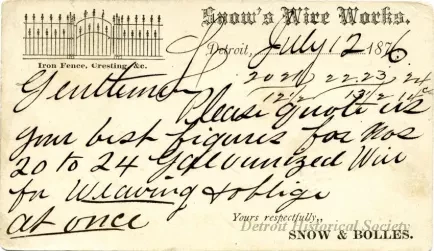 Snow's Wire Works.
Iron Fence, Cresting, &c.
Detroit, July 12 1876
20 21 22.23 24
Gentlemen 12½ 13½ 14c
Please quote us
your best figures for Nos
20 to 24 Galvanized Wire
for Weaving & oblige
at once
Yours respectfully,
Detroit Historical Society
SNOW & BOLLES.